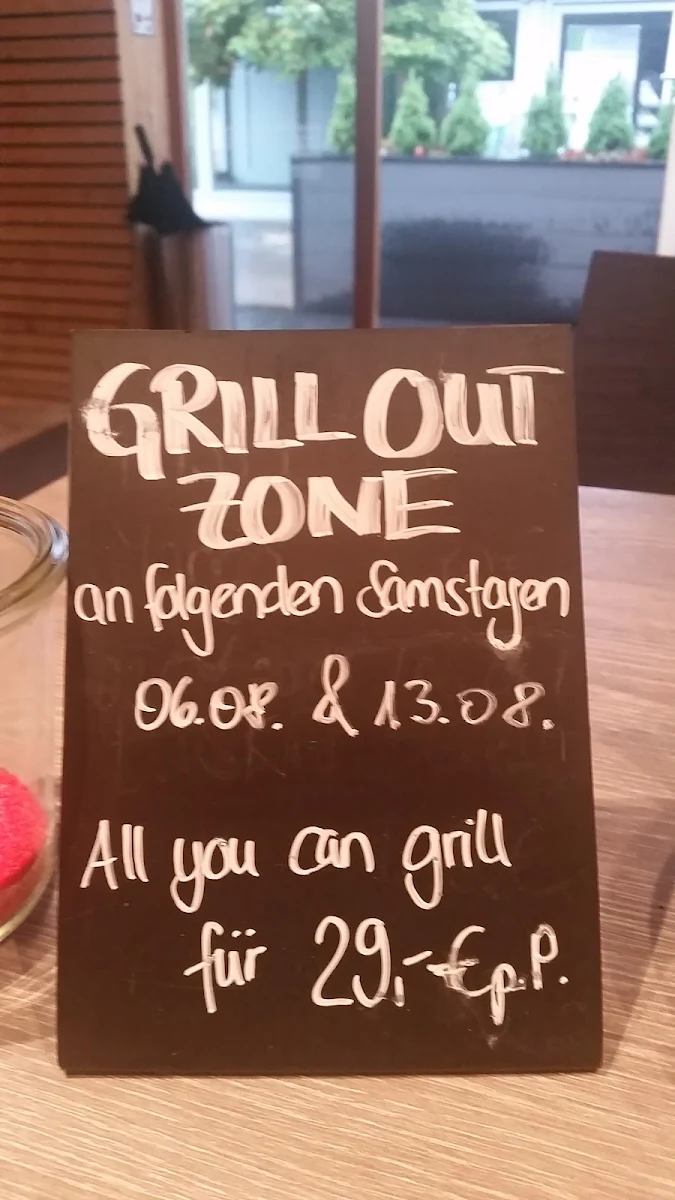 GRILL OUT
ZONE
an folgenden Samstagen
06.08. & 13.08.
All you can grill
für 29,-€ p.P.